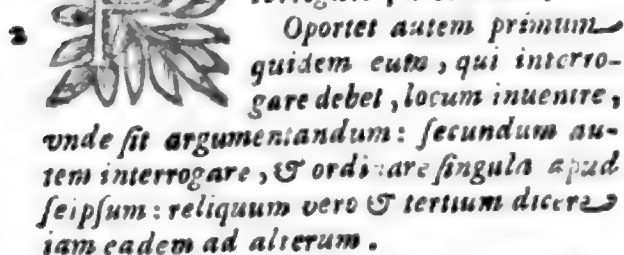 2
Oportet autem primum
quidem eum, qui interro-
gare debet, locum inuenire,
vnde ſit argumentandum: ſecundum au-
tem interrogare, & ordinare ſingula apud
ſeipſum: reliquum vero & tertium dicere
iam eadem ad alterum.